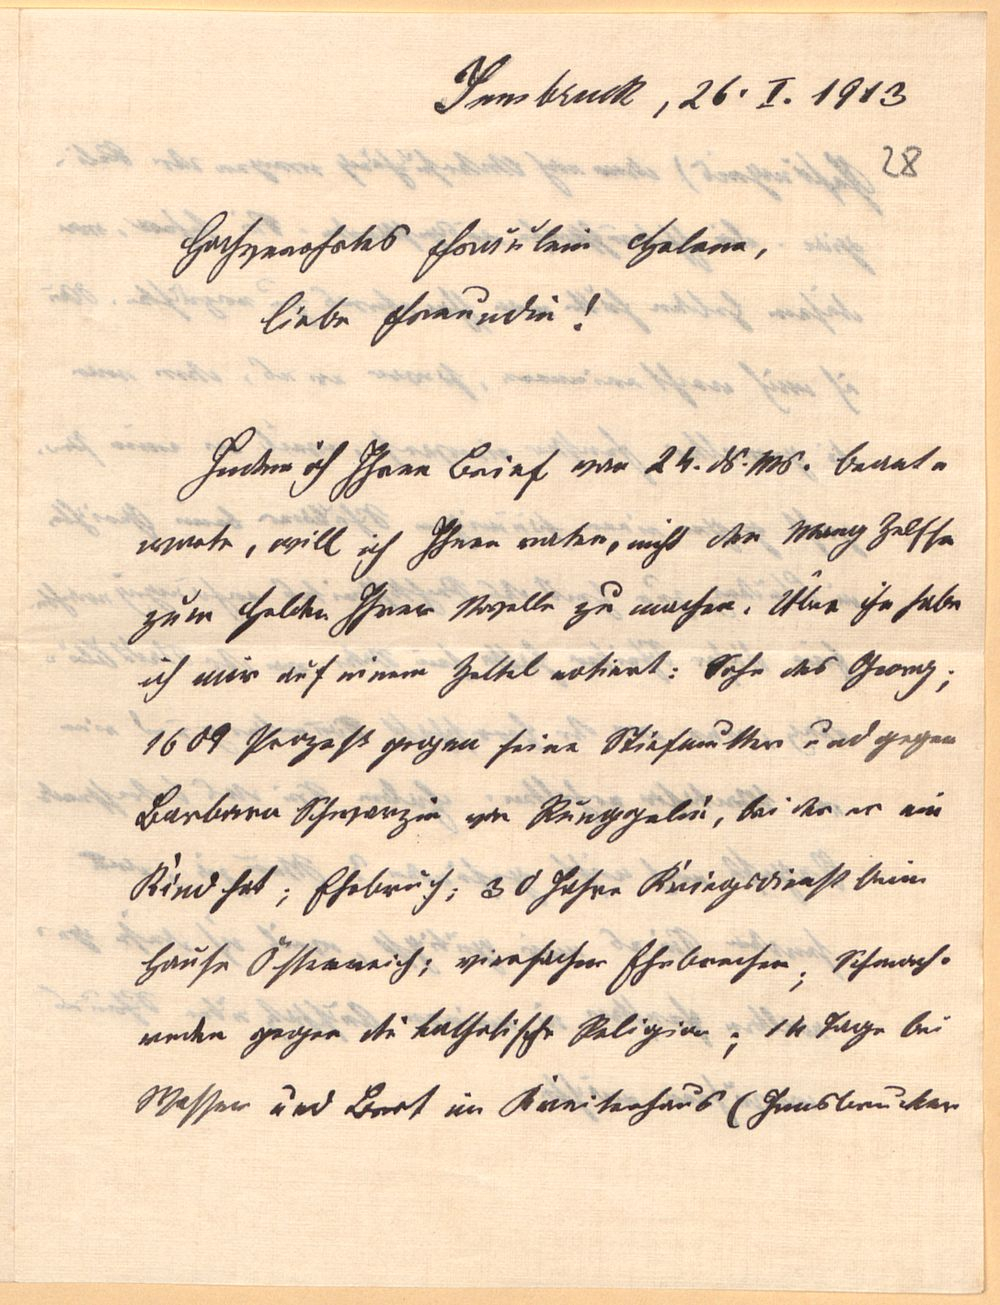 Innsbruck, 26. I. 1913
28
Hochverehrtes Fräulein Helene,
liebe Freundin!
Indem ich Ihren Brief vom 24. ds. Ms. beant-
worte, will ich Ihnen raten, nicht den
zum Helden Ihrer Novelle zu machen. Über ihn habe
ich mir auf einem Zettel notiert: Sohn des Georg;
1609 Prozeß gegen seine Stiefmutter und gegen
Barbara Schwarzin von Runggelin, bei der er ein
Kind hat; Ehebruch; 30 Jahre Kriegsdienst beim
Hause Österreich; vierfacher Ehebrecher; Schmach-
reden gegen die katholische Religion; 14 Tage bei
Wasser und Brot im Kreiterhaus (Innsbrucker